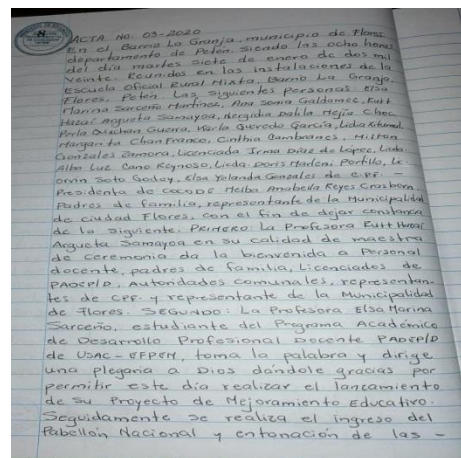 ACTA NO. 03-2020
En el Barrio La Granja, municipio de Flores
departamento de Petén. Siendo las ocho horas
del día martes siete de enero de dos mil
veinte. Reunidos en las instalaciones de la
Escuela Oficial Rural Mixta, Barrio La Granja,
Flores, Petén. Las siguientes personas: Elsa
Marina Sarceño Martínez, Ana Sonia Galdamez, Rutt
Hazai Argueta Samayoa, Hergidia Dalila Mejía Choc
Perla Guerra, Karla Quevedo García, Lidia
Margarita Chan Franco, Cinthia Cambranes,
Gonzales Zamora, Licenciada Irma Díaz de López, Licda.
Alba Luz Cano Reynoso, Licda. Doris Madeni Portillo, Lc.
Orvin Soto Godoy, Elsa Yolanda Gonzales de C.P.F. -
Presidenta de COCODE Melba Anabella Reyes
Padres de familia, representante de la Municipalidad
de ciudad Flores, con el fin de dejar constancia
de lo siguiente. PRIMERO: La Profesora Rutt Hazai
Argueta Samayoa en su calidad de maestra
de ceremonia da la bienvenida a Personal
docente, padres de familia, Licenciados de
PADEP/D, Autoridades comunales, representan-
tes de CPF. y representante de la Municipalidad
de Flores. SEGUNDO: La Profesora Elsa Marina
Sarceño, estudiante del Programa Académico
de Desarrollo Profesional Docente PADEP/D
de USAC-EFPEM, toma la palabra y dirige
una plegaria a Dios dándole gracias por
permitir este día realizar el lanzamiento
de su Proyecto de Mejoramiento Educativo.
Seguidamente se realiza el ingreso del
Pabellón Nacional y entonación de las -